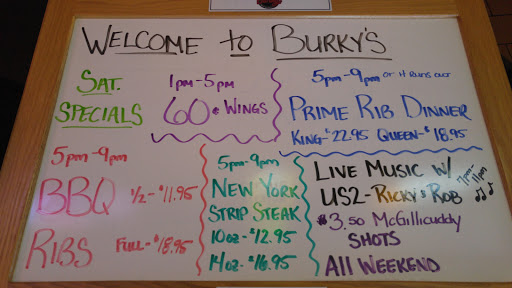 WELCOME TO BURKY'S
SAT.
SPECIALS
1pm-5pm
60¢ WINGS
5pm-9pm or it runs out
PRIME RIB DINNER
KING-$22.95 QUEEN-$18.95
5pm-9pm
BBQ 1/2-$11.95
RIBS FULL-$18.95
5pm-9pm
NEW YORK
STRIP STEAK
10oz-$12.95
14oz-$16.95
LIVE MUSIC W/
US2-RICKY & ROB
7pm-11pm
$3.50 McGILLICUDDY
SHOTS
ALL WEEKEND